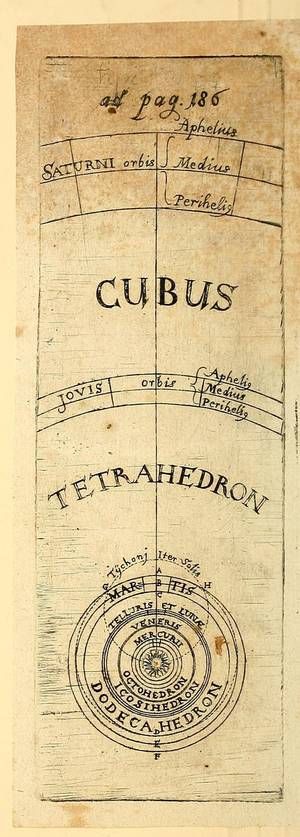 ad pag. 186
Aphelius
SATURNI orbis Medius
Perihelig
CUBUS
Aphelig
JOVIS orbis Medius
Perihelig
TETRAHEDRON
Tychonj Iter Solis
G A H
MAR B TIS
C
TELLURIS ET LUNÆ
VENERIS
MERCURII
OCTOHEDRON
ICOSIHEDRON
DODECAHEDRON
D
E
F